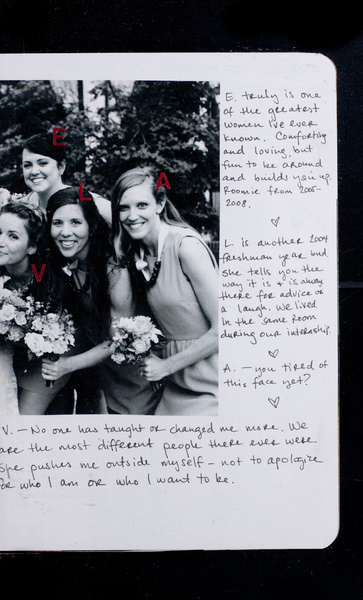 E
L
A
V
E. truly is one
of the greatest
women I've ever
known. Comforting
and loving, but
fun to be around
and builds you up.
Roomie from 2005-
2008.
L is another 2004
freshman year bud.
She tells you the
way it is & is always
there for advice or
a laugh. We lived
in the same room
during our internship.
A. — you tired of
this face yet?
V. — No one has taught or changed me more. We
are the most different people there ever were.
She pushes me outside myself — not to apologize
for who I am or who I want to be.